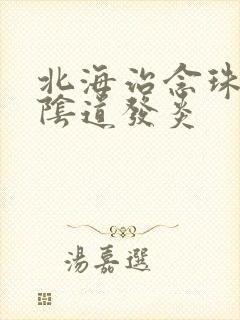 北海治念珠
陰道發炎
湯嘉選